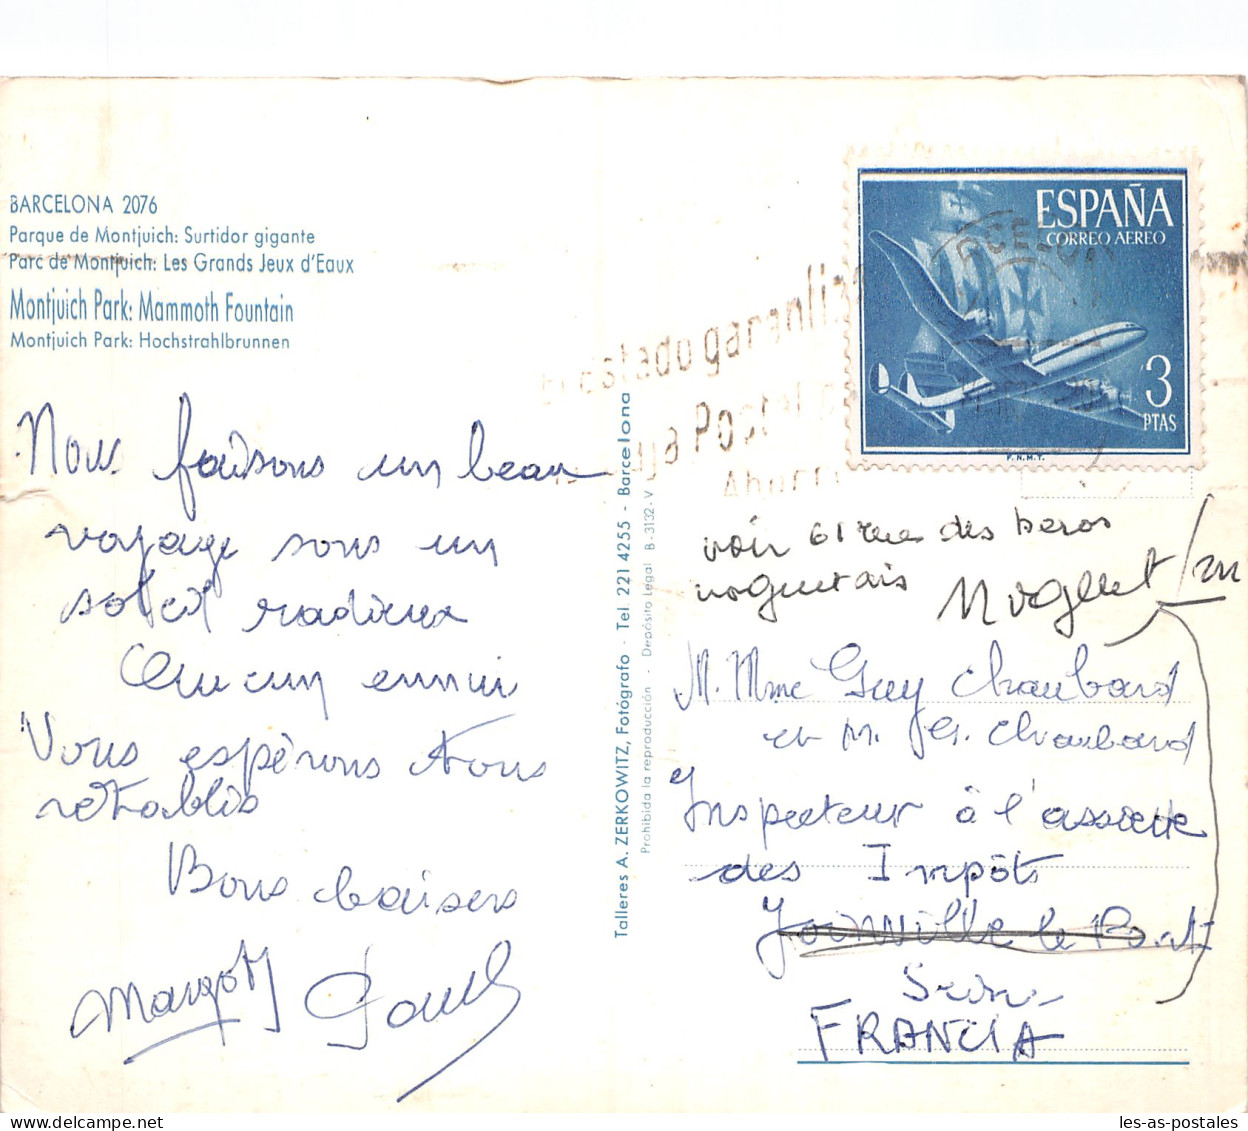 BARCELONA 2076
Parque de Montjuich: Surtidor gigante
Parc de Montjuich: Les Grands Jeux d'Eaux
Montjuich Park: Mammoth Fountain
Montjuich Park: Hochstrahlbrunnen
Nous faisons un beau
voyage sous un
soleil radieux
Aucun ennui
Vous espérons tous
rétablis
Bons baisers
Margot
Talleres A. ZERKOWITZ, Fotógrafo - Tel. 221 4255 - Barcelona
Prohibida la reproducción - Depósito Legal B-3132-V
El estado garantiza
Postal
Ahorro
ESPAÑA
CORREO AEREO
3
PTAS
F.N.M.T.
voir 61 rue des heros
nogentais
M. Mme Guy Chaubard
et M. Chaubard
Inspecteur à l'assiette
des Impôts
Joinville le Pont
Seine
FRANCIA
les-as-postales
www.delcampe.net